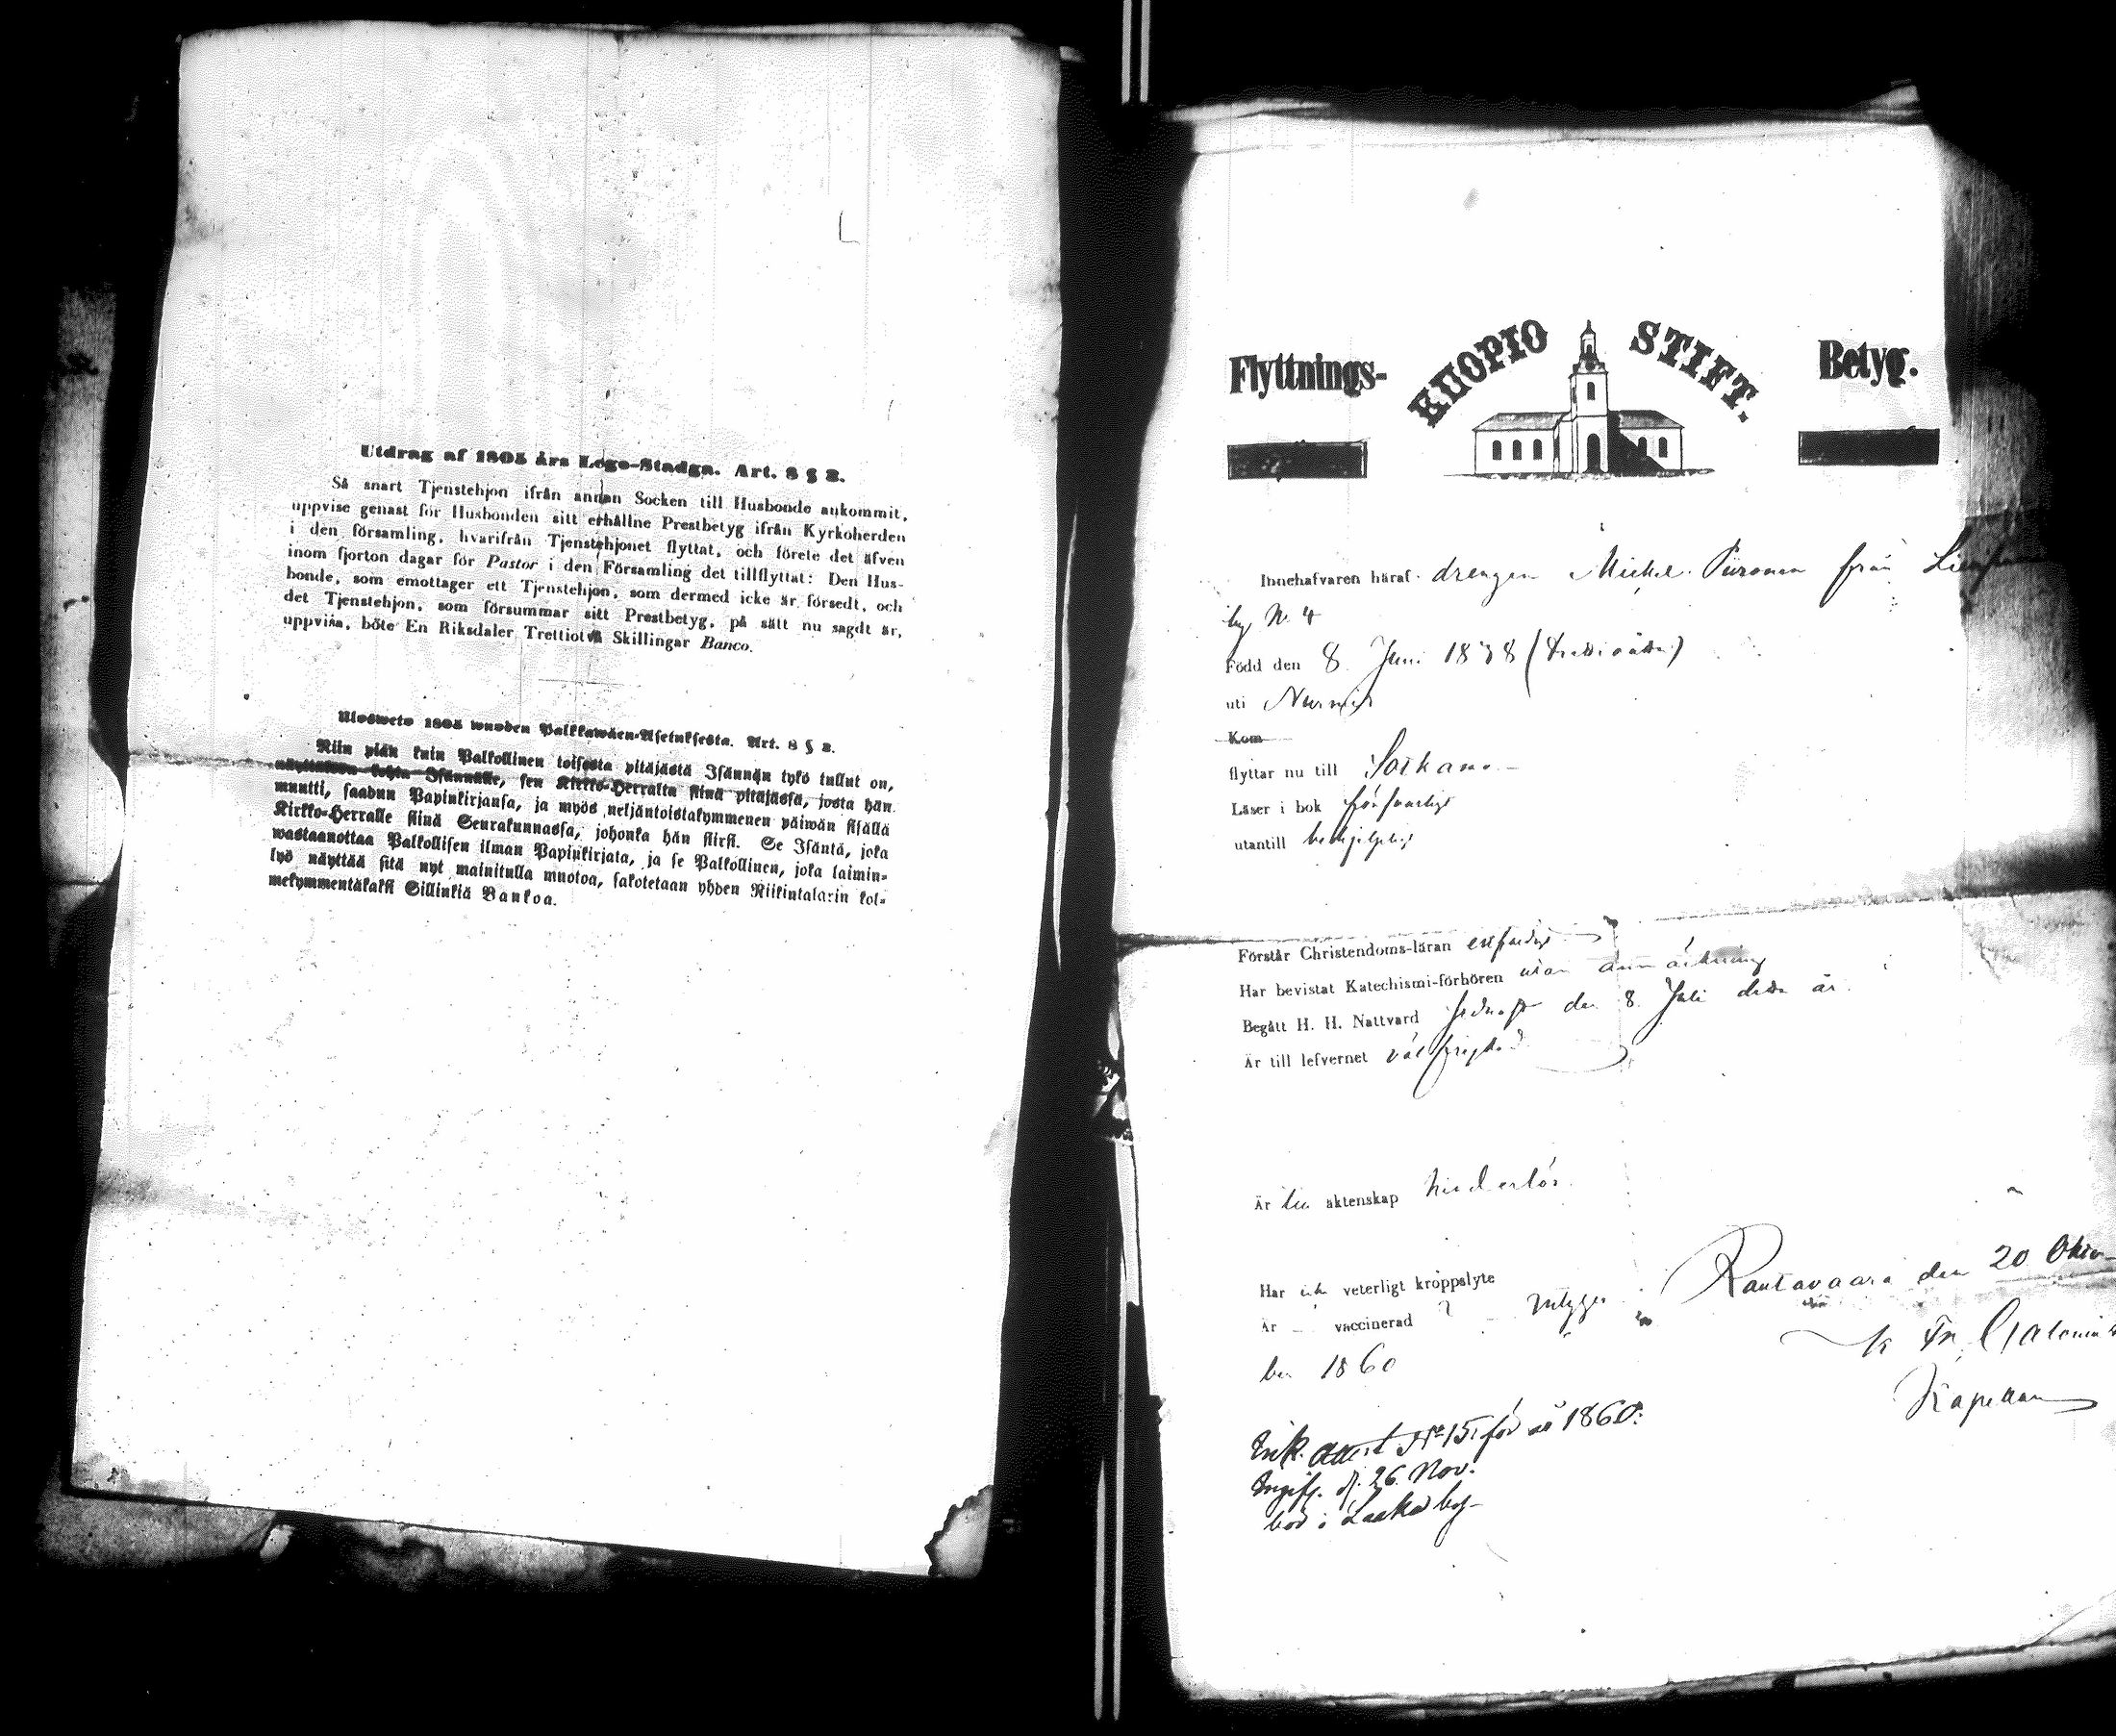 Utdrag af 1805 års Lego-Stadga. Art. 8 § 2.
Så snart Tjenstehjon ifrån annan Socken till Husbonde ankommit,
uppvise genast för Husbonden sitt erhållne Prestbetyg ifrån Kyrkoherden
i den församling, hvarifrån Tjenstehjonet flyttat, och förete det äfven
inom fjorton dagar för Pastor i den Församling det tillflyttat: Den Hus-
bonde, som emottager ett Tjenstehjon, som dermed icke är försedt, och
det Tjenstehjon, som försummar sitt Prestbetyg, på sätt nu sagdt är,
uppvisa, böte En Riksdaler Trettiotvå Skillingar Banco.
Ulosweto 1805 wuoden Palkkawäen-Asetuksesta. Art. 8 § 2.
Niin pian kuin Palkollinen toisesta pitäjästä Isännän tykö tullut on,
näyttäkön kohta Isännälle, sen Kirkko-Herralta siinä pitäjässä, josta hän
muutti, saadun Papinkirjansa, ja myös neljäntoistakymmenen päiwän sisällä
Kirkko-Herralle siinä Seurakunnassa, johonka hän siirsi. Se Isäntä, joka
wastaanottaa Palkollisen ilman Papinkirjata, ja se Palkollinen, joka laimin-
lyö näyttää sitä nyt mainitulla muotoa, sakotetaan yhden Riikintalarin kol-
mekymmentäkaksi Sillinkiä Bankoa.
Flyttnings- KUOPIO STIFT. Betyg.
Innehafvaren häraf drengen Mickel Piironen från
by No 4
Född den 8 Juni 1838 (trettioåtta)
uti Nurmis
Kom
flyttar nu till Sotkamo
Läser i bok försvarligt
utantill behjelpligt
Förstår Christendoms-läran enfaldigt
Har bevistat Katechismi-förhören utan anmärkning
Begått H. H. Nattvard sednast den 8 Juli detta år
Är till lefvernet välfrejdad
Är till äktenskap hinderlös
Har icke veterligt kroppslyte
Är vaccinerad intygar Rautavaara den 20 Okto-
ber 1860
K Fr.
Kapellan
Insk. attest No 15 för år 1860.
Ingifv. d. 26 Nov.
bor i by